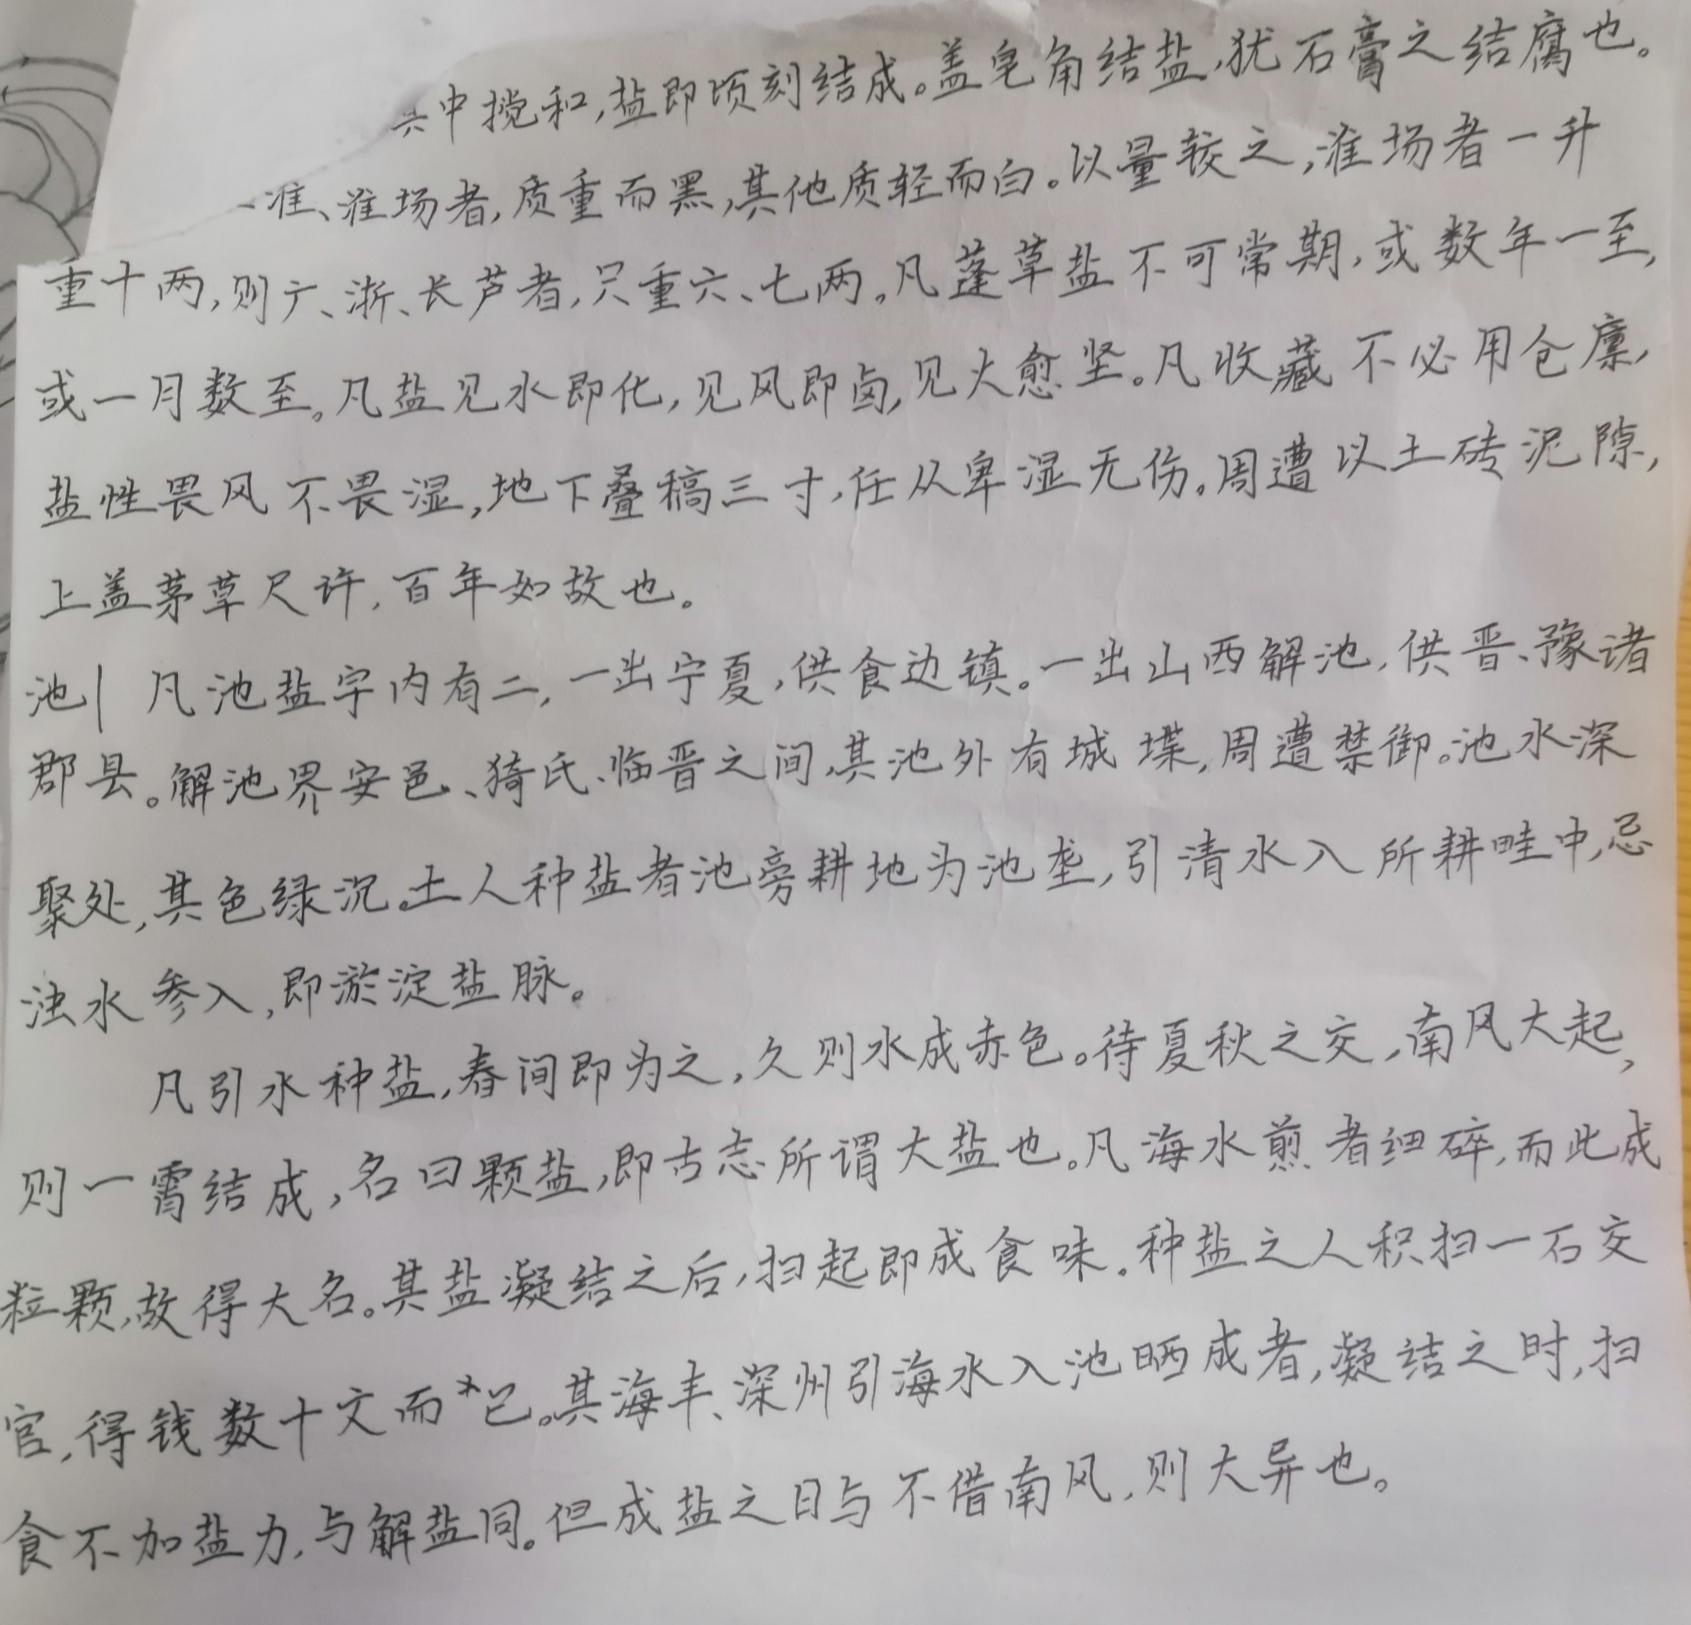 中搅和,盐即顷刻结成。盖皂角结盐,犹石膏之结腐也。
淮、淮场者,质重而黑,其他质轻而白。以量较之,淮场者一升
重十两,则广、浙、长芦者,只重六、七两。凡蓬草盐不可常期,或数年一至,
或一月数至。凡盐见水即化,见风即卤,见火愈坚。凡收藏不必用仓廪,
盐性畏风不畏湿,地下叠稿三寸,任从卑湿无伤。周遭以土砖泥隙,
上盖茅草尺许,百年如故也。
池| 凡池盐字内有二,一出宁夏,供食边镇。一出山西解池,供晋、豫诸
郡县。解池界安邑、猗氏、临晋之间,其池外有城堞,周遭禁御。池水深
聚处,其色绿沉。土人种盐者池旁耕地为池垄,引清水入所耕畦中,忌
浊水参入,即淤淀盐脉。
凡引水种盐,春间即为之,久则水成赤色。待夏秋之交,南风大起,
则一霄结成,名曰颗盐,即古志所谓大盐也。凡海水煎者细碎,而此成
粒颗,故得大名。其盐凝结之后,扫起即成食味。种盐之人积扫一石交
官,得钱数十文而已。其海丰、深州引海水入池晒成者,凝结之时,扫
食不加盐力,与解盐同。但成盐之日与不借南风,则大异也。